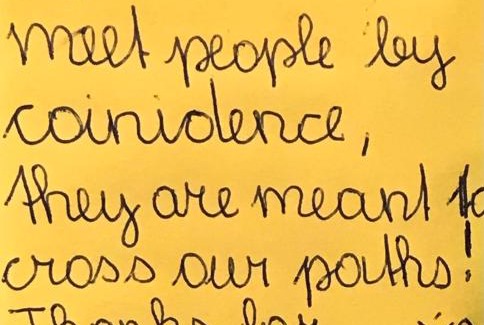 meet people by
coinidence,
they are meant to
cross our paths!
Thanks for